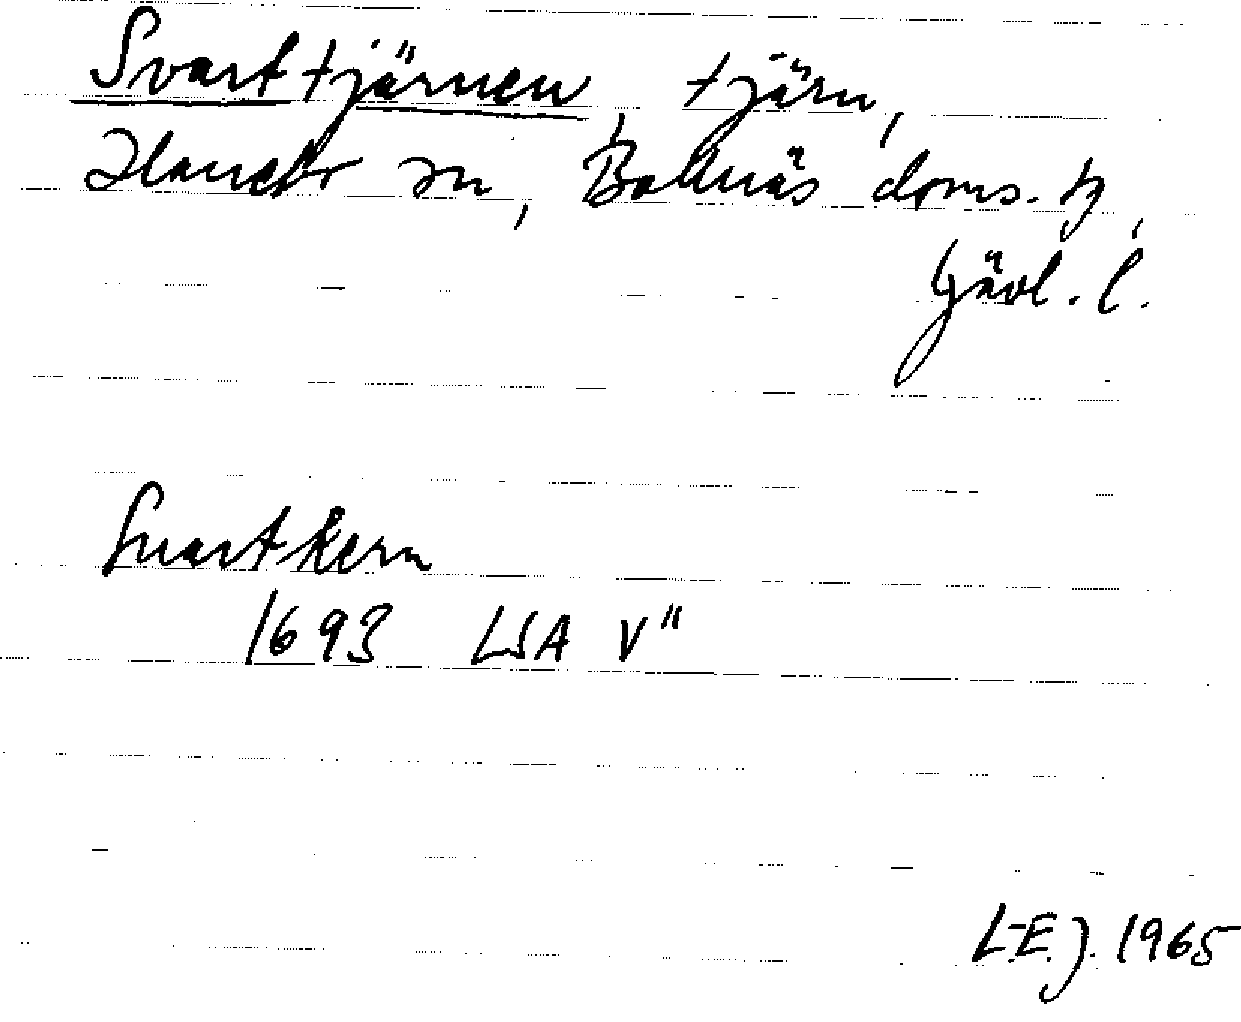 Svarttjärnen, tjärn,
Hanebo sn, Bollnäs doms. tg,
Gävl. l.
Suartkern
1693 LSA V"
L-E.J. 1965